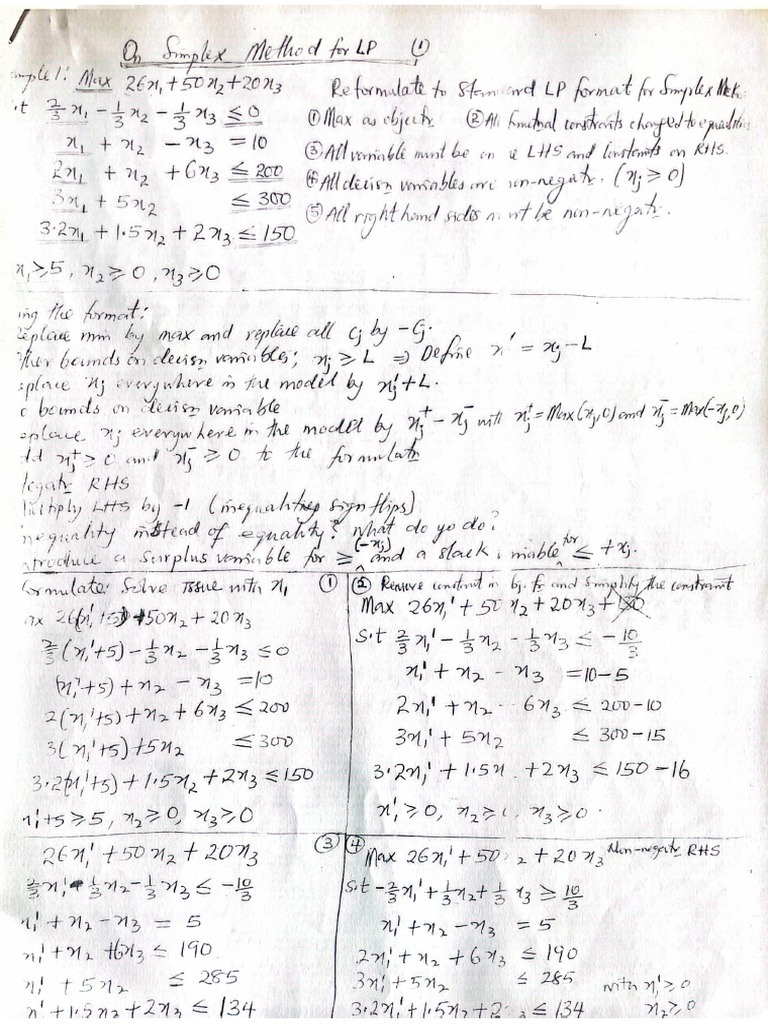 On Simplex Method for LP ①
mple 1: Max 26x₁+50x₂+20x₃
t 2/3 x₁ - 1/3 x₂ - 1/3 x₃ ≤ 0
x₁ + x₂ - x₃ = 10
2x₁ + x₂ + 6x₃ ≤ 200
3x₁ + 5x₂ ≤ 300
3.2x₁ + 1.5x₂ + 2x₃ ≤ 150
x₁ ≥ 5, x₂ ≥ 0, x₃ ≥ 0
Reformulate to Standard LP format for Simplex
① Max as ② All functional constraints changed to
③ All variable must be on LHS and constants on RHS.
④ All decisn variables are non-negatv. (xⱼ ≥ 0)
⑤ All right hand sides must be non-negatv.
ing the format:
Replace min by max and replace all Cj by -Cj.
ther bounds on decisn variables; xⱼ ≥ L ⇒ Define x' = xⱼ - L
place xⱼ everywhere in the model by xⱼ' + L.
o bounds on decisn variable
place xⱼ everywhere in the model by xⱼ⁺ - xⱼ⁻ with xⱼ⁺ = Max(xⱼ,0) and xⱼ⁻ = Max(-xⱼ,0)
dd xⱼ⁺ ≥ 0 and xⱼ⁻ ≥ 0 to the formulatn
legatv RHS
ultiply LHS by -1 (inequalities sign flips)
nequality instead of equality? What do yo do?
troduce a surplus variable for ≥ (-xⱼ) and a slack variable for ≤ +xⱼ.
ormulate: Solve issue with x₁ ①
ax 26(x₁'+5) + 50x₂ + 20x₃
2/3 (x₁'+5) - 1/3 x₂ - 1/3 x₃ ≤ 0
(x₁'+5) + x₂ - x₃ = 10
2(x₁'+5) + x₂ + 6x₃ ≤ 200
3(x₁'+5) + 5x₂ ≤ 300
3.2(x₁'+5) + 1.5x₂ + 2x₃ ≤ 150
x₁'+5 ≥ 5, x₂ ≥ 0, x₃ ≥ 0
② Remove constant in bj. fx and simplify the constraint
Max 26x₁' + 50x₂ + 20x₃
S.t 2/3 x₁' - 1/3 x₂ - 1/3 x₃ ≤ -10/3
x₁' + x₂ - x₃ = 10-5
2x₁' + x₂ 6x₃ ≤ 200-10
3x₁' + 5x₂ ≤ 300-15
3.2x₁' + 1.5x + 2x₃ ≤ 150-16
x₁' ≥ 0, x₂ ≥ , x₃ ≥ 0.
③
26x₁' + 50x₂ + 20x₃
2/3 x₁' - 1/3 x₂ - 1/3 x₃ ≤ -10/3
x₁' + x₂ - x₃ = 5
x₁' + x₂ + 6x₃ ≤ 190
x₁' + 5x₂ ≤ 285
x' + 1.5x₂ + 2x₃ ≤ 134
④ Max 26x₁' + 50 ₂ + 20x₃ Non-negatv RHS
S.t -2/3 x₁' + 1/3 x₂ + 1/3 x₃ ≥ 10/3
x₁' + x₂ - x₃ = 5
2x₁' + x₂ + 6x₃ ≤ 190
3x₁' + 5x₂ ≤ 285 with x₁' ≥ 0
3.2x₁' + 1.5x₂ + 2 ₃ ≤ 134 x₂ ≥ 0